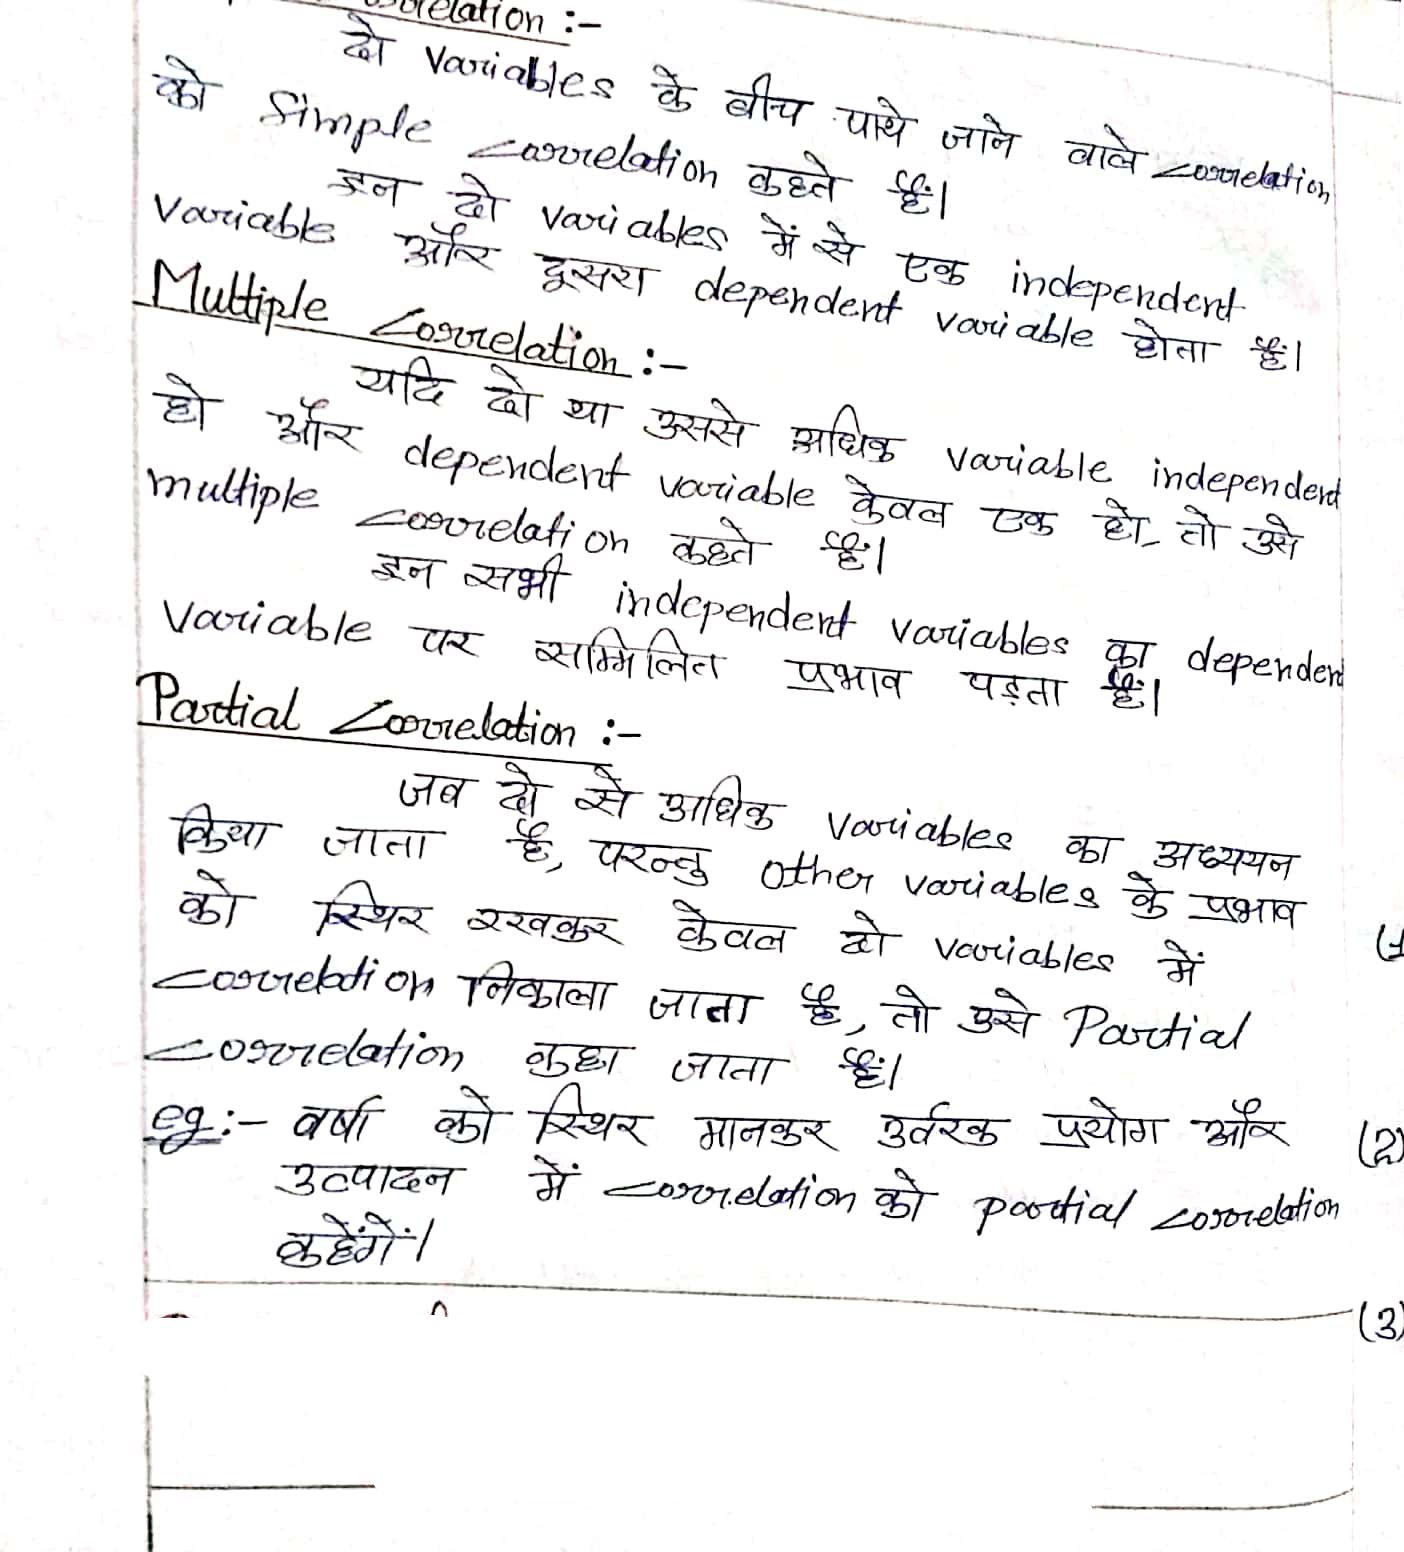 दो variables के बीच पाये जाने वाले correlation
को Simple correlation कहते हैं।
इन दो variables में से एक independent
variable और दूसरा dependent variable होता हैं।
Multiple Correlation :-
यदि दो या उससे अधिक variable independent
हो और dependent variable केवल एक हो, तो उसे
multiple correlation कहते हैं।
इन सभी independent variables का dependent
variable पर सम्मिलित प्रभाव पड़ता हैं।
Partial Correlation :-
जब दो से अधिक variables का अध्ययन
किया जाता है, परन्तु other variables के प्रभाव
को स्थिर रखकर केवल दो variables में
correlation निकाला जाता है, तो उसे Partial
correlation कहा जाता हैं।
eg:- वर्षा को स्थिर मानकर उर्वरक प्रयोग और
उत्पादन में correlation को partial correlation
कहेंगें।
(2)
(3)